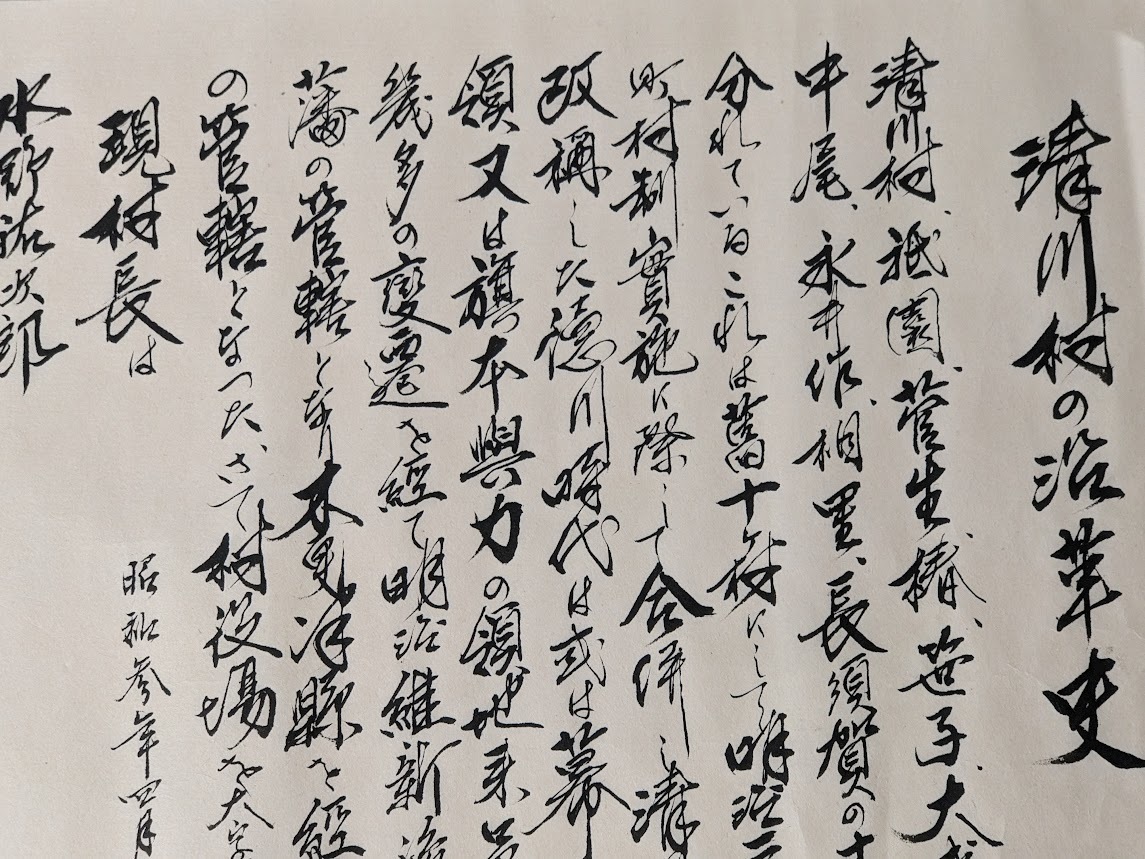 清川村の沿革史
清川村、祇園、菅生、椿、笹子、大
中尾、永井作、相里、長須賀の十
分れているこれは舊十ヶ村にして明治二
町村制實施に際して合併し清
改稱した德川時代は或は幕
領又は旗本與力の領地来
幾多の變遷を経て明治維新
藩の菅轄となり木更津縣を経
の菅轄となつた、さて村役場を大字
現村長は
昭和参年四月
水野祐次郎